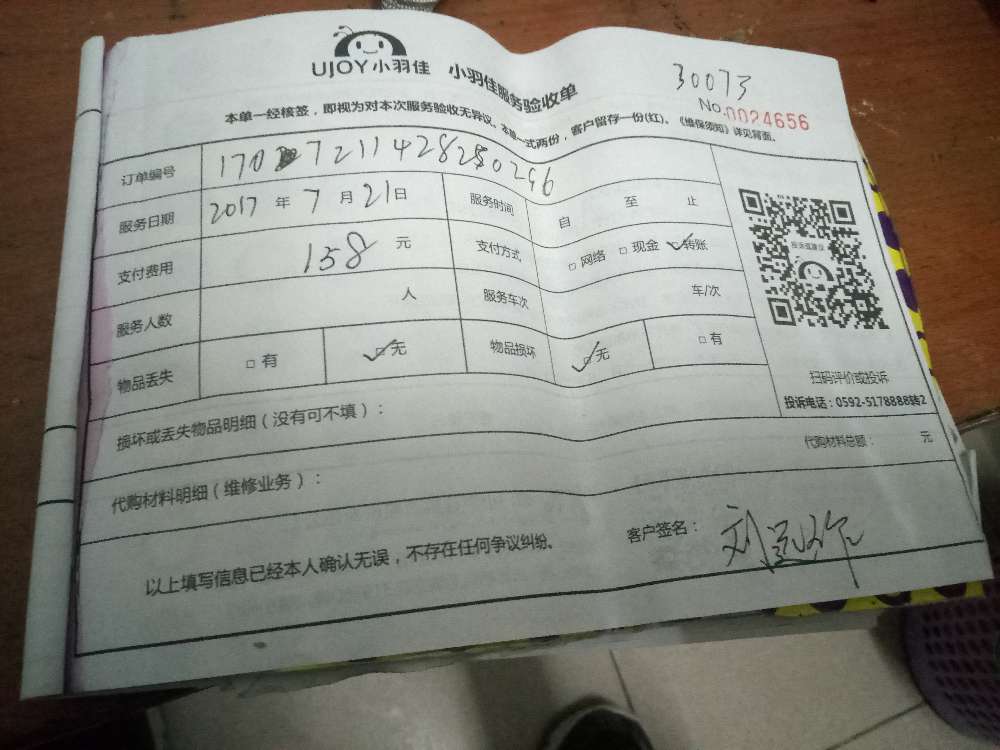 UJOY小羽佳 小羽佳服务验收单
30073
No.0024656
本单一经核签，即视为对本次服务验收无异议。本单一式两份，客户留存一份(红)。《维保须知》详见背面。
订单编号
服务日期 2017 年 7 月 21 日 服务时间 自 至 止
支付费用 158 元 支付方式 □网络 □现金 ☑转账
服务人数 人 服务车次 车/次
物品丢失 □有 ☑无 物品损坏 ☑无 □有
扫码评价或投诉
投诉电话：0592-5178888转2
损坏或丢失物品明细（没有可不填）：
代购材料明细（维修业务）： 代购材料总额： 元
以上填写信息已经本人确认无误，不存在任何争议纠纷。 客户签名：